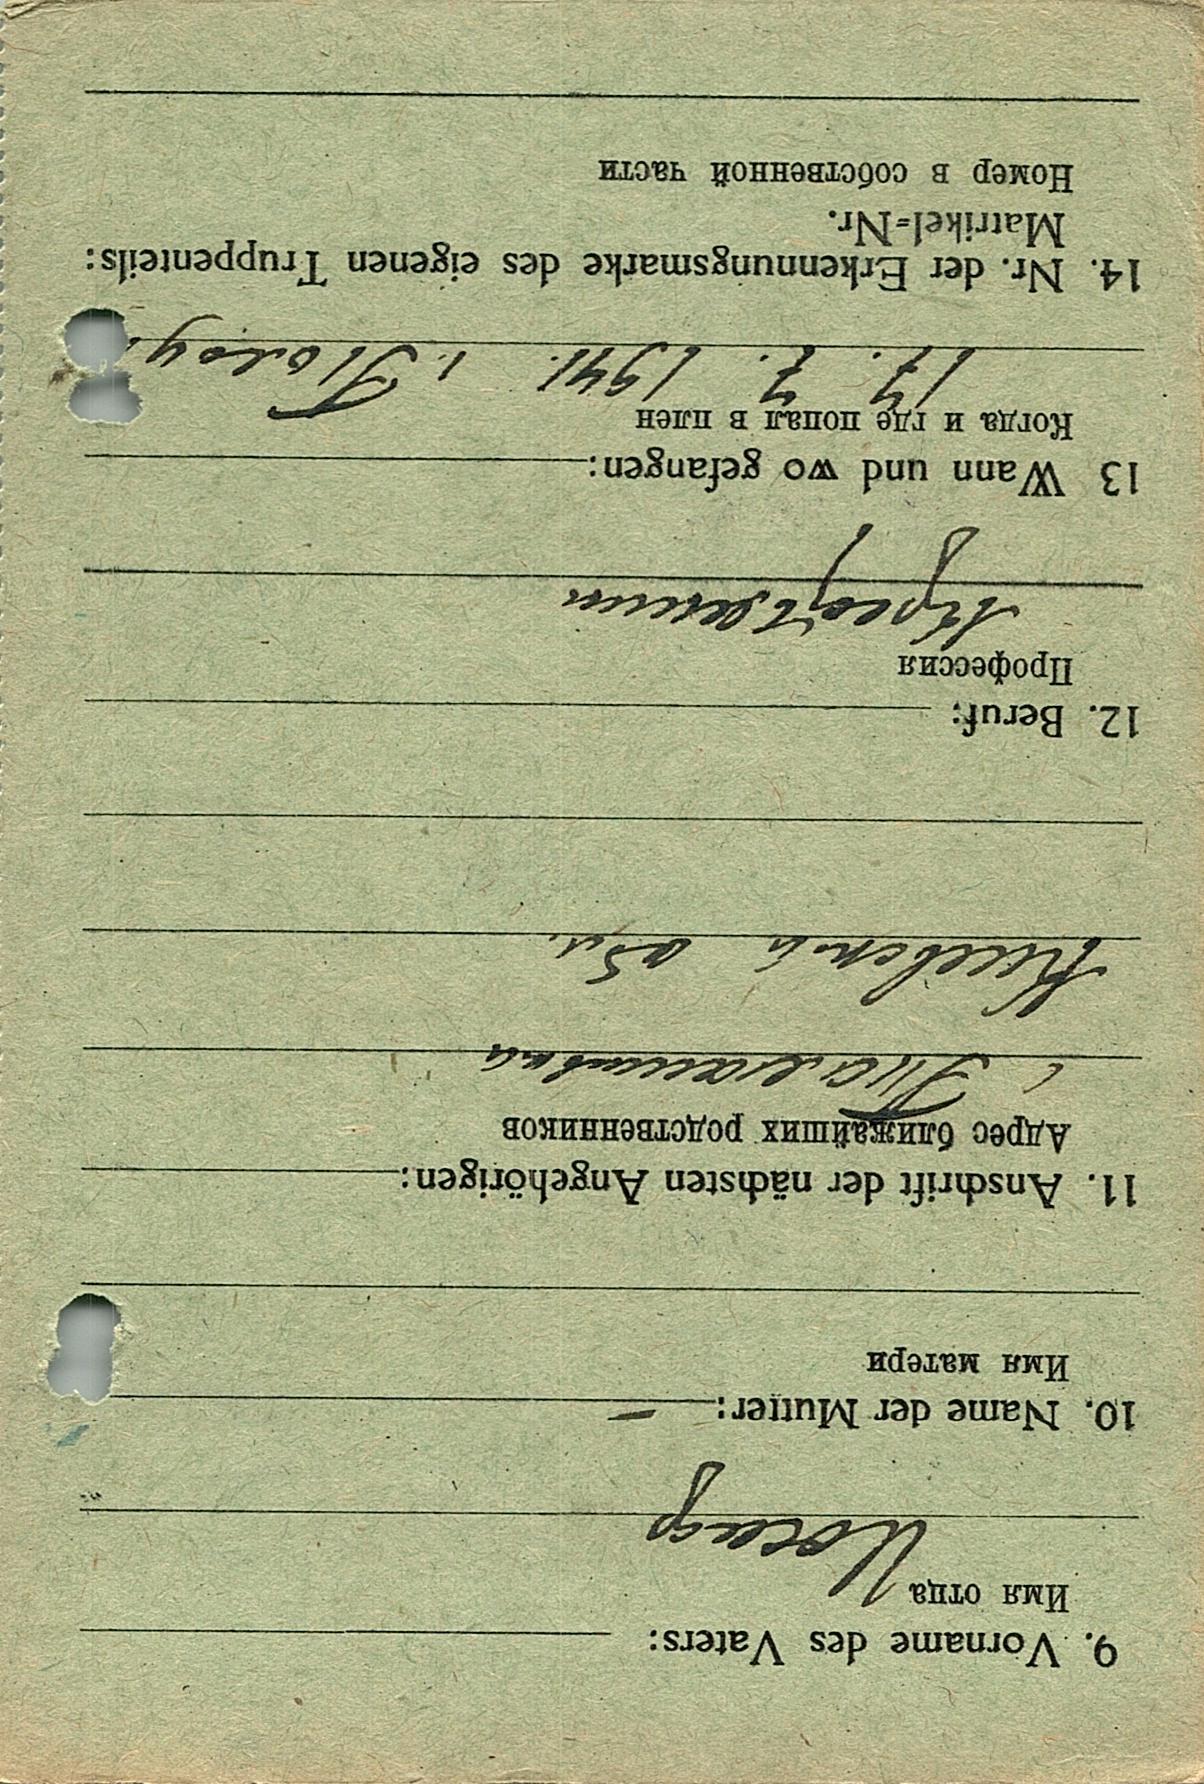 9. Vorname des Vaters:
Имя отца
Иосиф
10. Name der Mutter: —
Имя матери
11. Anschrift der nächsten Angehörigen:
Адрес ближайших родственников
с.
обл.
12. Beruf:
Профессия
13 Wann und wo gefangen:
Когда и где попал в плен
17. 7. 1941.
14. Nr. der Erkennungsmarke des eigenen Truppenteils:
Matrikel=Nr.
Номер в собственной части